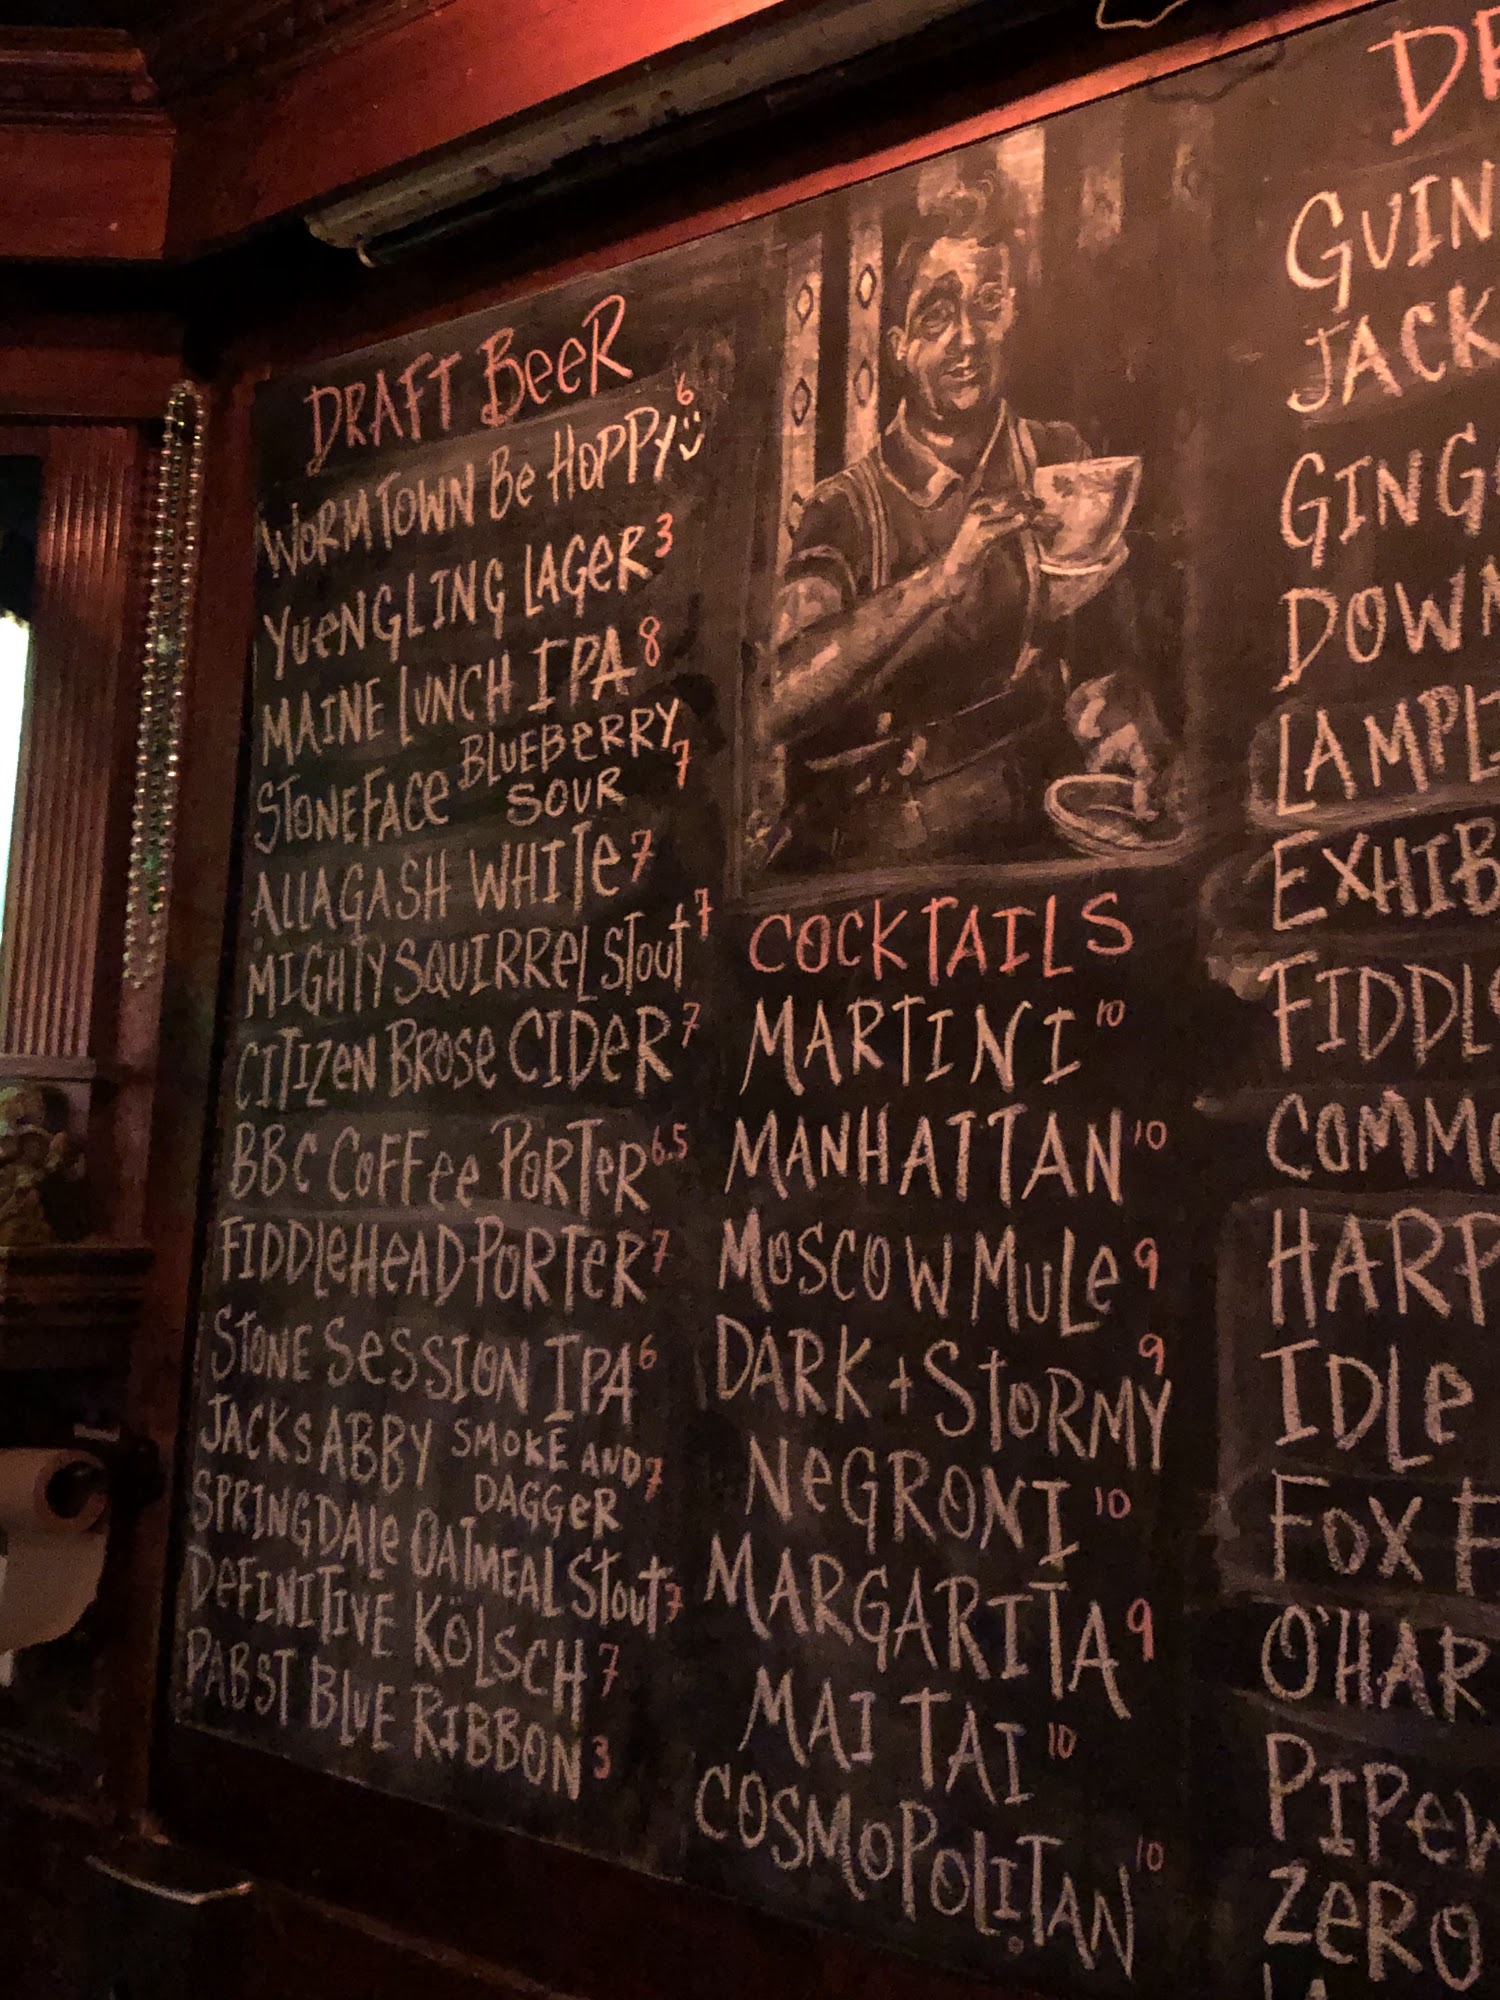 DRAFT BEER
WORMTOWN BE HOPPY 6
YUENGLING LAGER 3
MAINE LUNCH IPA 8
STONEFACE BLUEBERRY
SOUR 7
ALLAGASH WHITE 7
MIGHTY SQUIRREL STOUT 7
CITIZEN BROSE CIDER 7
BBC COFFEE PORTER 6.5
FIDDLEHEAD PORTER 7
STONE SESSION IPA 6
JACKS ABBY SMOKE AND
DAGGER 7
SPRINGDALE OATMEAL STOUT 7
DEFINITIVE KÖLSCH 7
PABST BLUE RIBBON 3
COCKTAILS
MARTINI 10
MANHATTAN 10
MOSCOW MULE 9
DARK + STORMY 9
NEGRONI 10
MARGARITA 9
MAI TAI 10
COSMOPOLITAN 10
GUIN
JACK
GING
DOWN
LAMPL
EXHIB
FIDDL
COMMO
HARP
IDLE
FOX F
O'HAR
PIPEW
ZERO